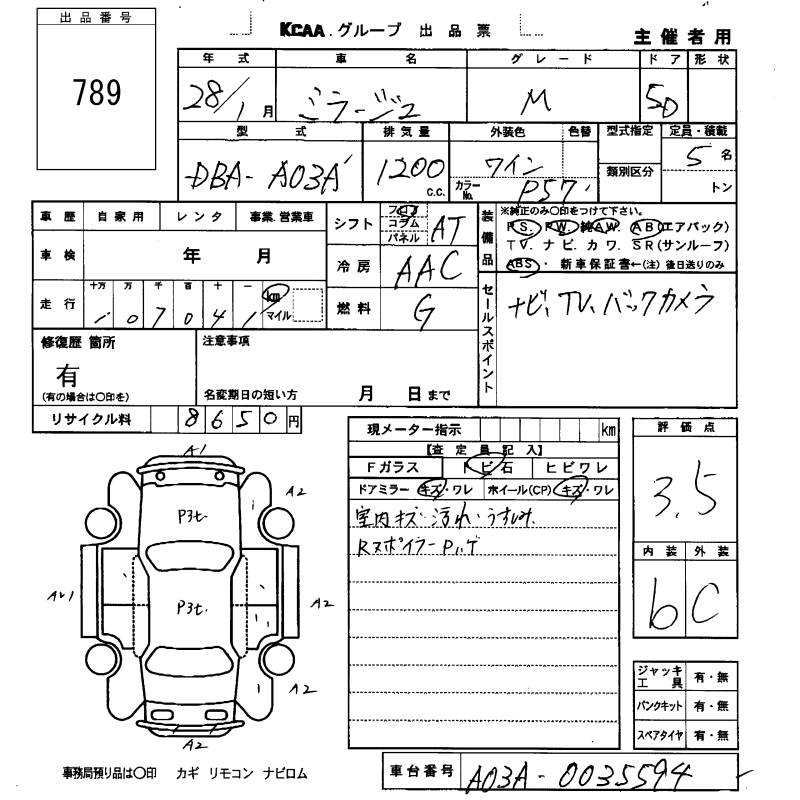 出品番号
789
KCAA グループ 出品票
主催者用
年式 車名 グレード ドア 形状
28/1月 ミラージュ M 5D
型式 排気量 外装色 色替 型式指定 定員・積載
DBA- A03A 1200 c.c. ワイン カラーNo. P57 類別区分 5名 トン
車歴 自家用 レンタ 事業.営業車
シフト フロア コラム パネル AT
装備品 ※純正のみ〇印をつけて下さい。
P.S. P.W. 純A.W. A B(エアバック)
T V. ナ ビ. カ ワ. S R(サンルーフ)
ABS・ 新車保証書←(注) 後日送りのみ
車検 年 月
冷房 AAC
走行 十万 万 千 百 十 一 km マイル
1 0 7 0 4 1
燃料 G
セールスポイント
ナビ、TV、バックカメラ
修復歴 箇所
有
(有の場合は〇印を)
注意事項
名変期日の短い方 月 日まで
リサイクル料 8 6 5 0 円
現メーター指示 km
【査定員記入】
Fガラス トビ石 ヒビワレ
ドアミラー キズ・ワレ ホイール(CP) キズ・ワレ
室内キズ・汚れ・うすしみ
Rスポイラー Pハゲ
評価点
3.5
内装 外装
b C
ジャッキ工具 有・無
パンクキット 有・無
スペアタイヤ 有・無
A1
A2
P3t.
AU1
P3t.
A2
A2
A2
事務局預り品は〇印 カギ リモコン ナビロム
車台番号 A03A-0035594